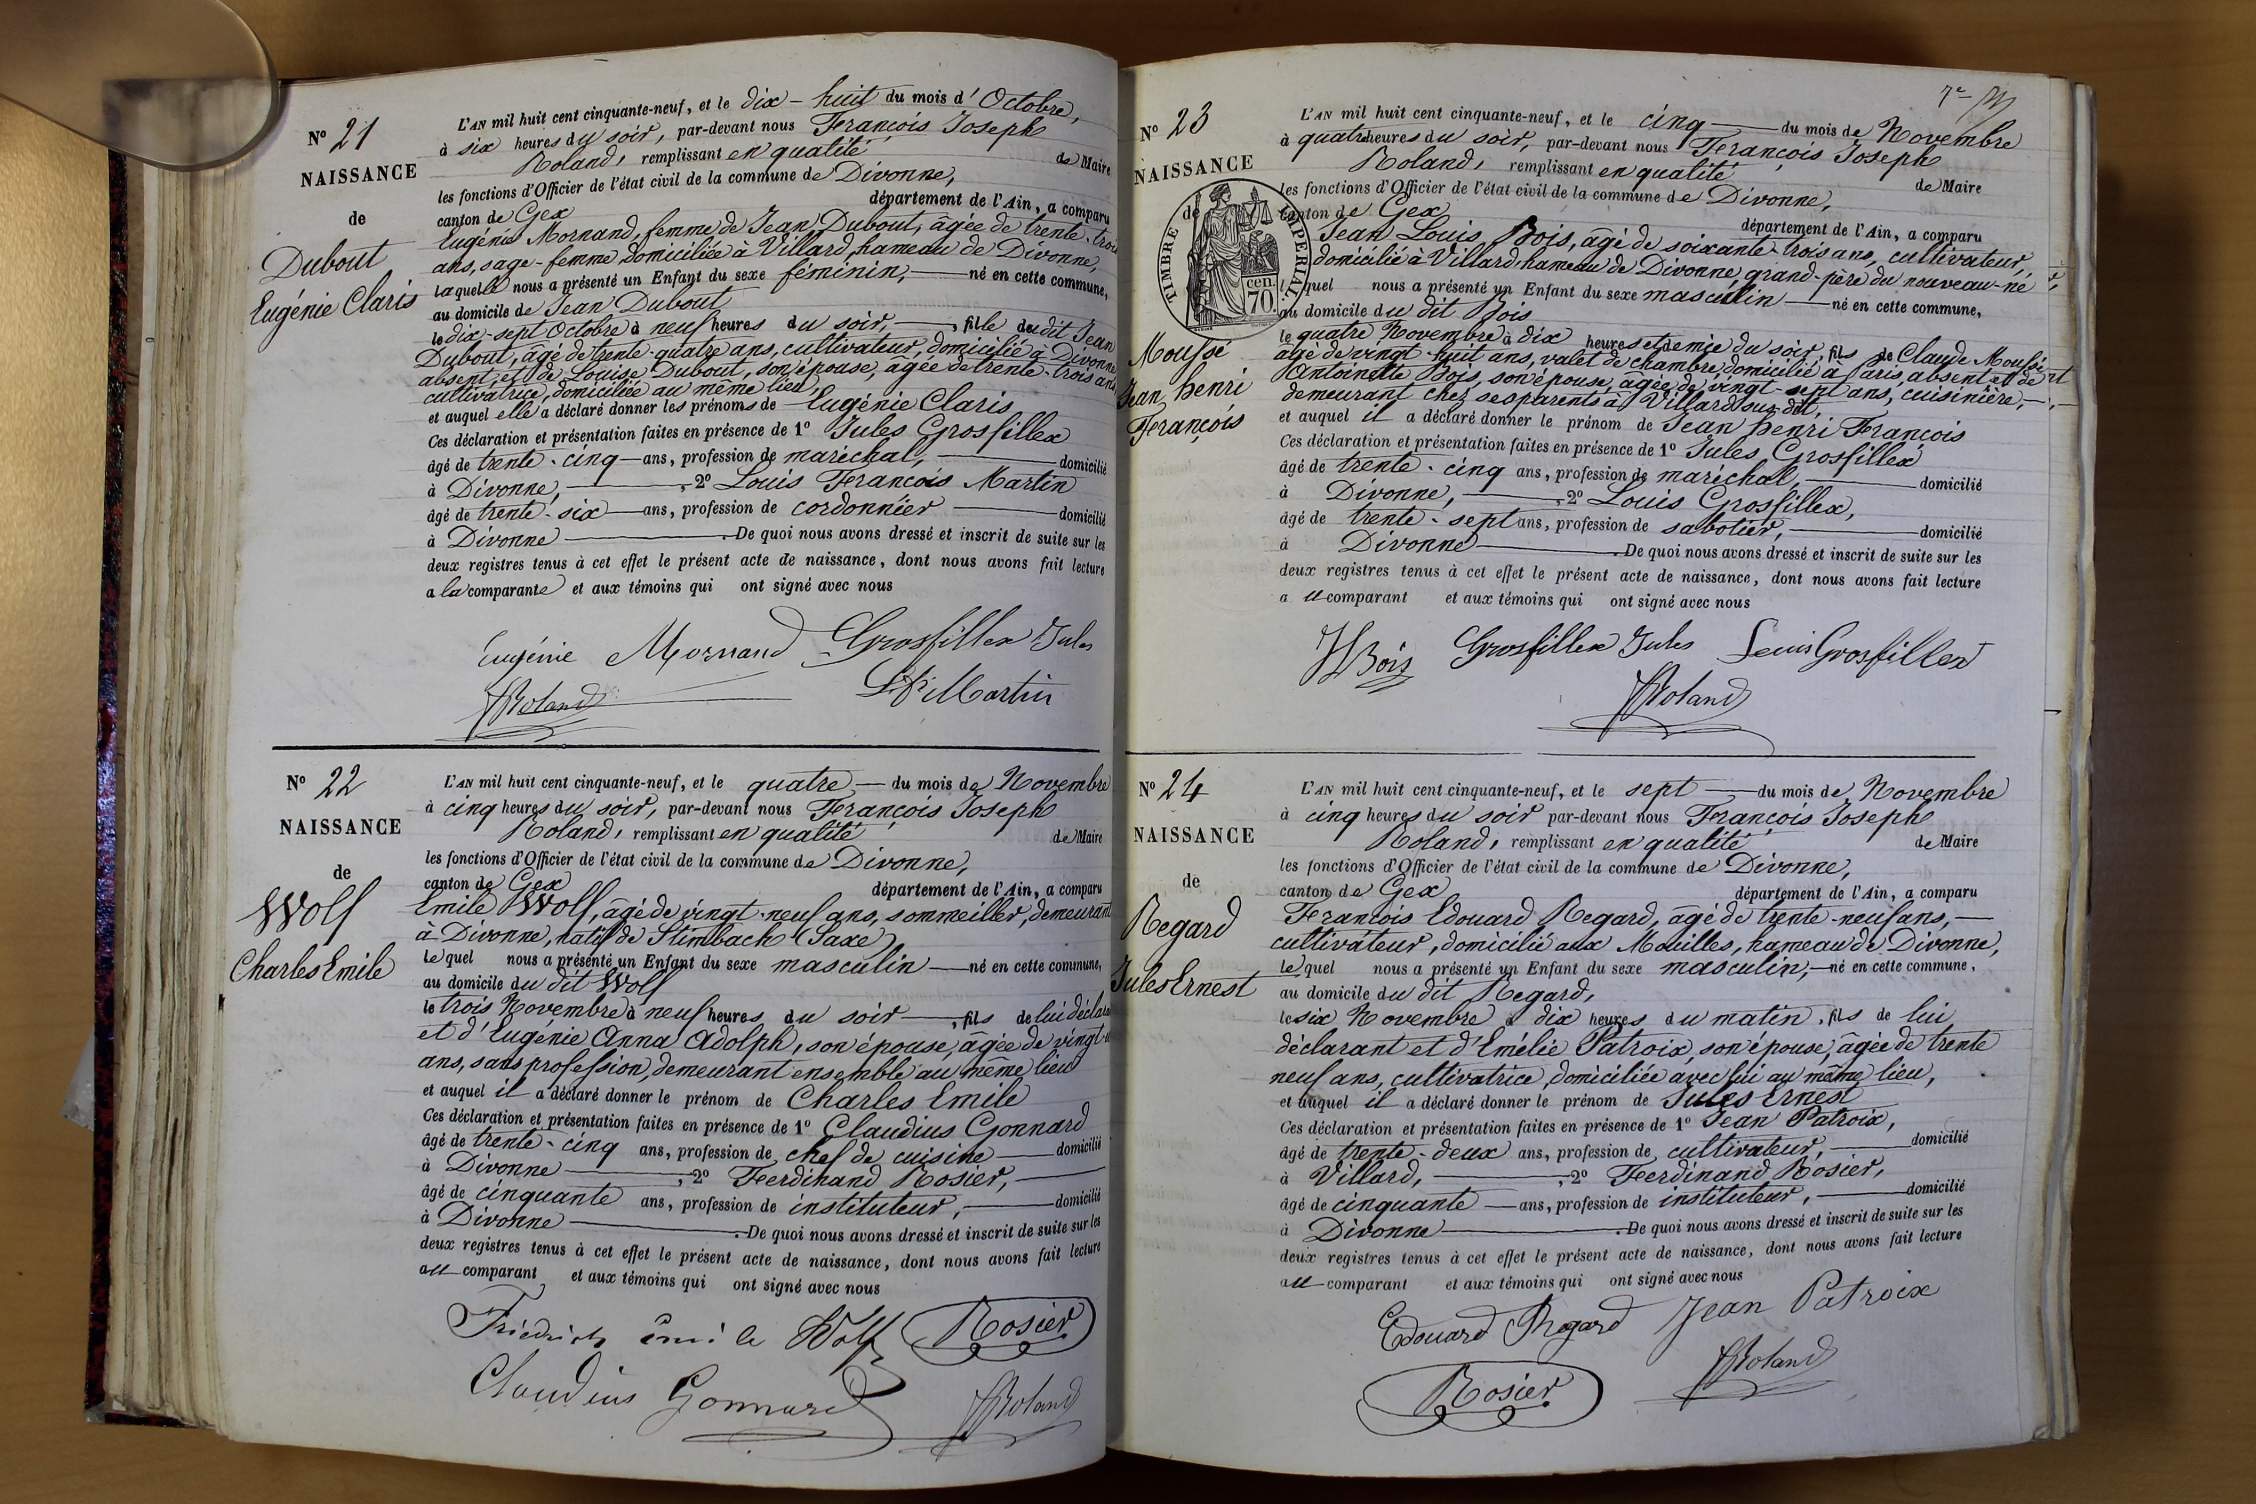 N° 21
NAISSANCE
de
Dubout
Eugénie Claris
L'AN mil huit cent cinquante-neuf, et le dix-huit du mois d'Octobre,
à six heures du soir, par-devant nous François Joseph
Roland, remplissant en qualité de Maire
les fonctions d'Officier de l'état civil de la commune de Divonne,
canton de Gex département de l'Ain, a comparu
Eugénie Mornand, femme de Jean Dubout, âgée de trente-trois
ans, sage-femme domiciliée à Villard, hameau de Divonne,
laquelle nous a présenté un Enfant du sexe féminin, né en cette commune,
au domicile de Jean Dubout
le dix-sept Octobre à neuf heures du soir, fille du dit Jean
Dubout, âgé de trente-quatre ans, cultivateur, domicilié à Divonne
absent, et de Louise Dubout, son épouse, âgée de trente-trois ans
cultivatrice, domiciliée au même lieu,
et auquel elle a déclaré donner les prénoms de Eugénie Claris
Ces déclaration et présentation faites en présence de 1° Jules Grosfillex
âgé de trente-cinq ans, profession de maréchal, domicilié
à Divonne, 2° Louis François Martin
âgé de trente-six ans, profession de cordonnier domicilié
à Divonne. De quoi nous avons dressé et inscrit de suite sur les
deux registres tenus à cet effet le présent acte de naissance, dont nous avons fait lecture
a la comparante et aux témoins qui ont signé avec nous
Eugénie Mornand Grosfillex Jules
Roland L F Martin
N° 22
NAISSANCE
de
Wolf
Charles Emile
L'AN mil huit cent cinquante-neuf, et le quatre du mois de Novembre
à cinq heures du soir, par-devant nous François Joseph
Roland, remplissant en qualité de Maire
les fonctions d'Officier de l'état civil de la commune de Divonne,
canton de Gex département de l'Ain, a comparu
Emile Wolf, âgé de vingt-neuf ans, sommeiller, demeurant
à Divonne, natif de Stimbach (Saxe)
lequel nous a présenté un Enfant du sexe masculin né en cette commune,
au domicile du dit Wolf
le trois Novembre à neuf heures du soir, fils de lui déclarant
et d'Eugénie Anna Adolph, son épouse, âgée de vingt
ans, sans profession, demeurant ensemble au même lieu
et auquel il a déclaré donner le prénom de Charles Emile
Ces déclaration et présentation faites en présence de 1° Claudius Gonnard
âgé de trente-cinq ans, profession de chef de cuisine domicilié
à Divonne, 2° Ferdinand Rosier,
âgé de cinquante ans, profession de instituteur, domicilié
à Divonne. De quoi nous avons dressé et inscrit de suite sur les
deux registres tenus à cet effet le présent acte de naissance, dont nous avons fait lecture
au comparant et aux témoins qui ont signé avec nous
Friedrich Emile Wolf Rosier
Claudius Gonnard Roland
7e
N° 23
NAISSANCE
de
TIMBRE IMPÉRIAL.
70. cen.
Moussé
Jean henri
François
L'AN mil huit cent cinquante-neuf, et le cinq du mois de Novembre
à quatre heures du soir, par-devant nous François Joseph
Roland, remplissant en qualité de Maire
les fonctions d'Officier de l'état civil de la commune de Divonne,
canton de Gex département de l'Ain, a comparu
Jean Louis Bois, âgé de soixante-trois ans, cultivateur,
domicilié à Villard, hameau de Divonne, grand-père du nouveau-né
lequel nous a présenté un Enfant du sexe masculin né en cette commune,
au domicile du dit Bois
le quatre Novembre à dix heures et demie du soir, fils de Claude Moussé
âgé de vingt-huit ans, valet de chambre, domicilié à Paris, absent et de
Antoinette Bois, son épouse, âgée de vingt-sept ans, cuisinière,
demeurant chez ses parents à Villard sus-dit,
et auquel il a déclaré donner le prénom de Jean henri François
Ces déclaration et présentation faites en présence de 1° Jules Grosfillex
âgé de trente-cinq ans, profession de maréchal, domicilié
à Divonne, 2° Louis Grosfillex,
âgé de trente-sept ans, profession de sabotier, domicilié
à Divonne. De quoi nous avons dressé et inscrit de suite sur les
deux registres tenus à cet effet le présent acte de naissance, dont nous avons fait lecture
au comparant et aux témoins qui ont signé avec nous
Bois Grosfillex Jules Louis Grosfillex
Roland
N° 24
NAISSANCE
de
Regard
Jules Ernest
L'AN mil huit cent cinquante-neuf, et le sept du mois de Novembre
à cinq heures du soir par-devant nous François Joseph
Roland, remplissant en qualité de Maire
les fonctions d'Officier de l'état civil de la commune de Divonne,
canton de Gex département de l'Ain, a comparu
François Edouard Regard, âgé de trente-neuf ans,
cultivateur, domicilié aux Mouilles, hameau de Divonne,
lequel nous a présenté un Enfant du sexe masculin, né en cette commune,
au domicile du dit Regard,
le six Novembre à dix heures du matin, fils de lui
déclarant et d'Emélie Patroix, son épouse, âgée de trente
neuf ans, cultivatrice, domiciliée avec lui au même lieu,
et auquel il a déclaré donner le prénom de Jules Ernest
Ces déclaration et présentation faites en présence de 1° Jean Patroix,
âgé de trente-deux ans, profession de cultivateur, domicilié
à Villard, 2° Ferdinand Rosier,
âgé de cinquante ans, profession de instituteur, domicilié
à Divonne. De quoi nous avons dressé et inscrit de suite sur les
deux registres tenus à cet effet le présent acte de naissance, dont nous avons fait lecture
au comparant et aux témoins qui ont signé avec nous
Edouard Regard Jean Patroix
Rosier Roland